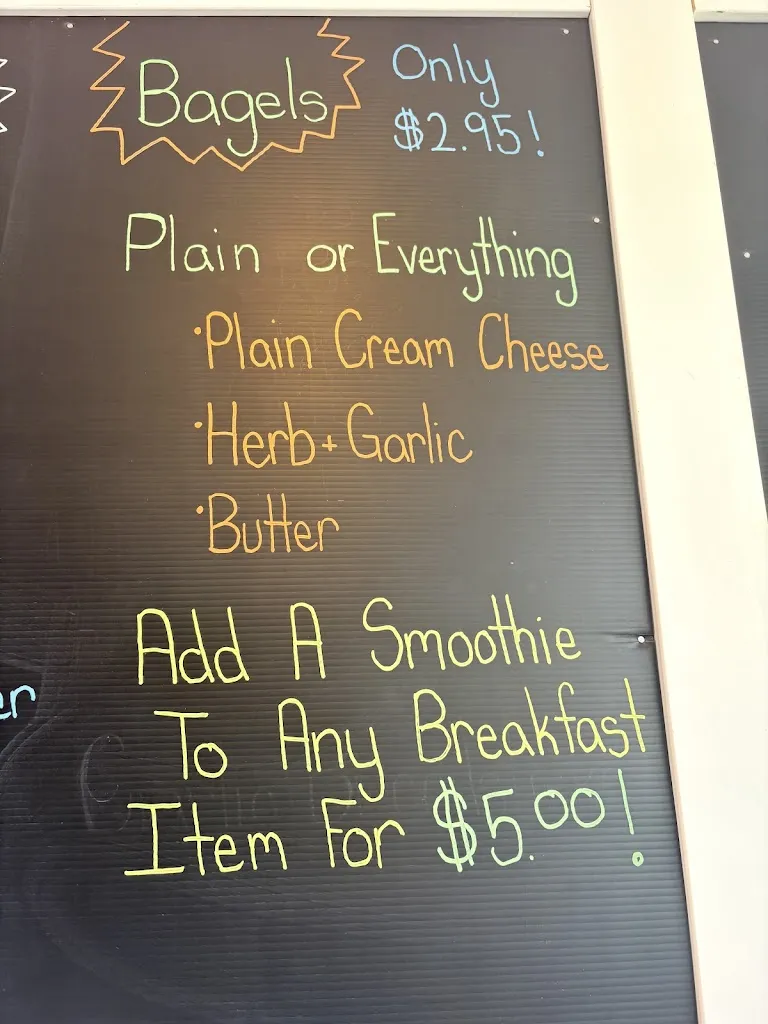 Bagels
Only
$2.95!
Plain or Everything
·Plain Cream Cheese
·Herb+Garlic
·Butter
Add A Smoothie
To Any Breakfast
Item For $5.00!
er